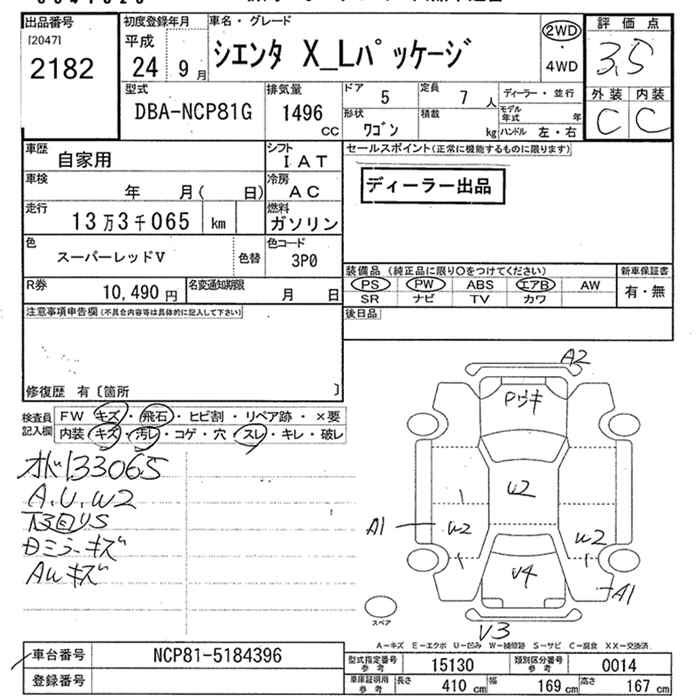 出品番号
[2047]
2182
初度登録年月
平成
24 9月
車名・グレード
シエンタ X_Lパッケージ
2WD
・
4WD
評価点
3.5
外装 内装
C C
型式
DBA-NCP81G
排気量
1496
CC
ドア 5
定員 7 人
形状 ワゴン
積載 kg
ディーラー・並行
モデル年式 年
ハンドル 左・右
車歴 自家用
シフト IAT
車検 年 月( 日)
冷房 AC
走行 13万3千065 km
燃料 ガソリン
色 スーパーレッドV
色替
色コード 3P0
R券 10,490円
名変通知期限 月 日
セールスポイント(正常に機能するものに限ります)
ディーラー出品
装備品 (純正品に限り○をつけてください)
PS PW ABS エアB AW
SR ナビ TV カワ
新車保証書
有・無
後日品
注意事項申告欄(不具合内容等は具体的に記入して下さい)
修復歴 有〔箇所 〕
検査員記入欄
FW キズ・飛石・ヒビ割・リペア跡・×要
内装 キズ・汚レ・コゲ・穴・スレ・キレ・破レ
133065
A.U.W2
ミラーキズ
AWキズ
A2
Pウキ
U2
A1
W2
W2
A1
U4
V3
スペア
A-キズ E-エクボ U-凹み W-補修跡 S-サビ C-腐食 XX-交換済
車台番号 NCP81-5184396
登録番号
型式指定番号 参考 15130
類別区分番号 参考 0014
車庫証明用 参考 長さ 410 cm 幅 169 cm 高さ 167 cm